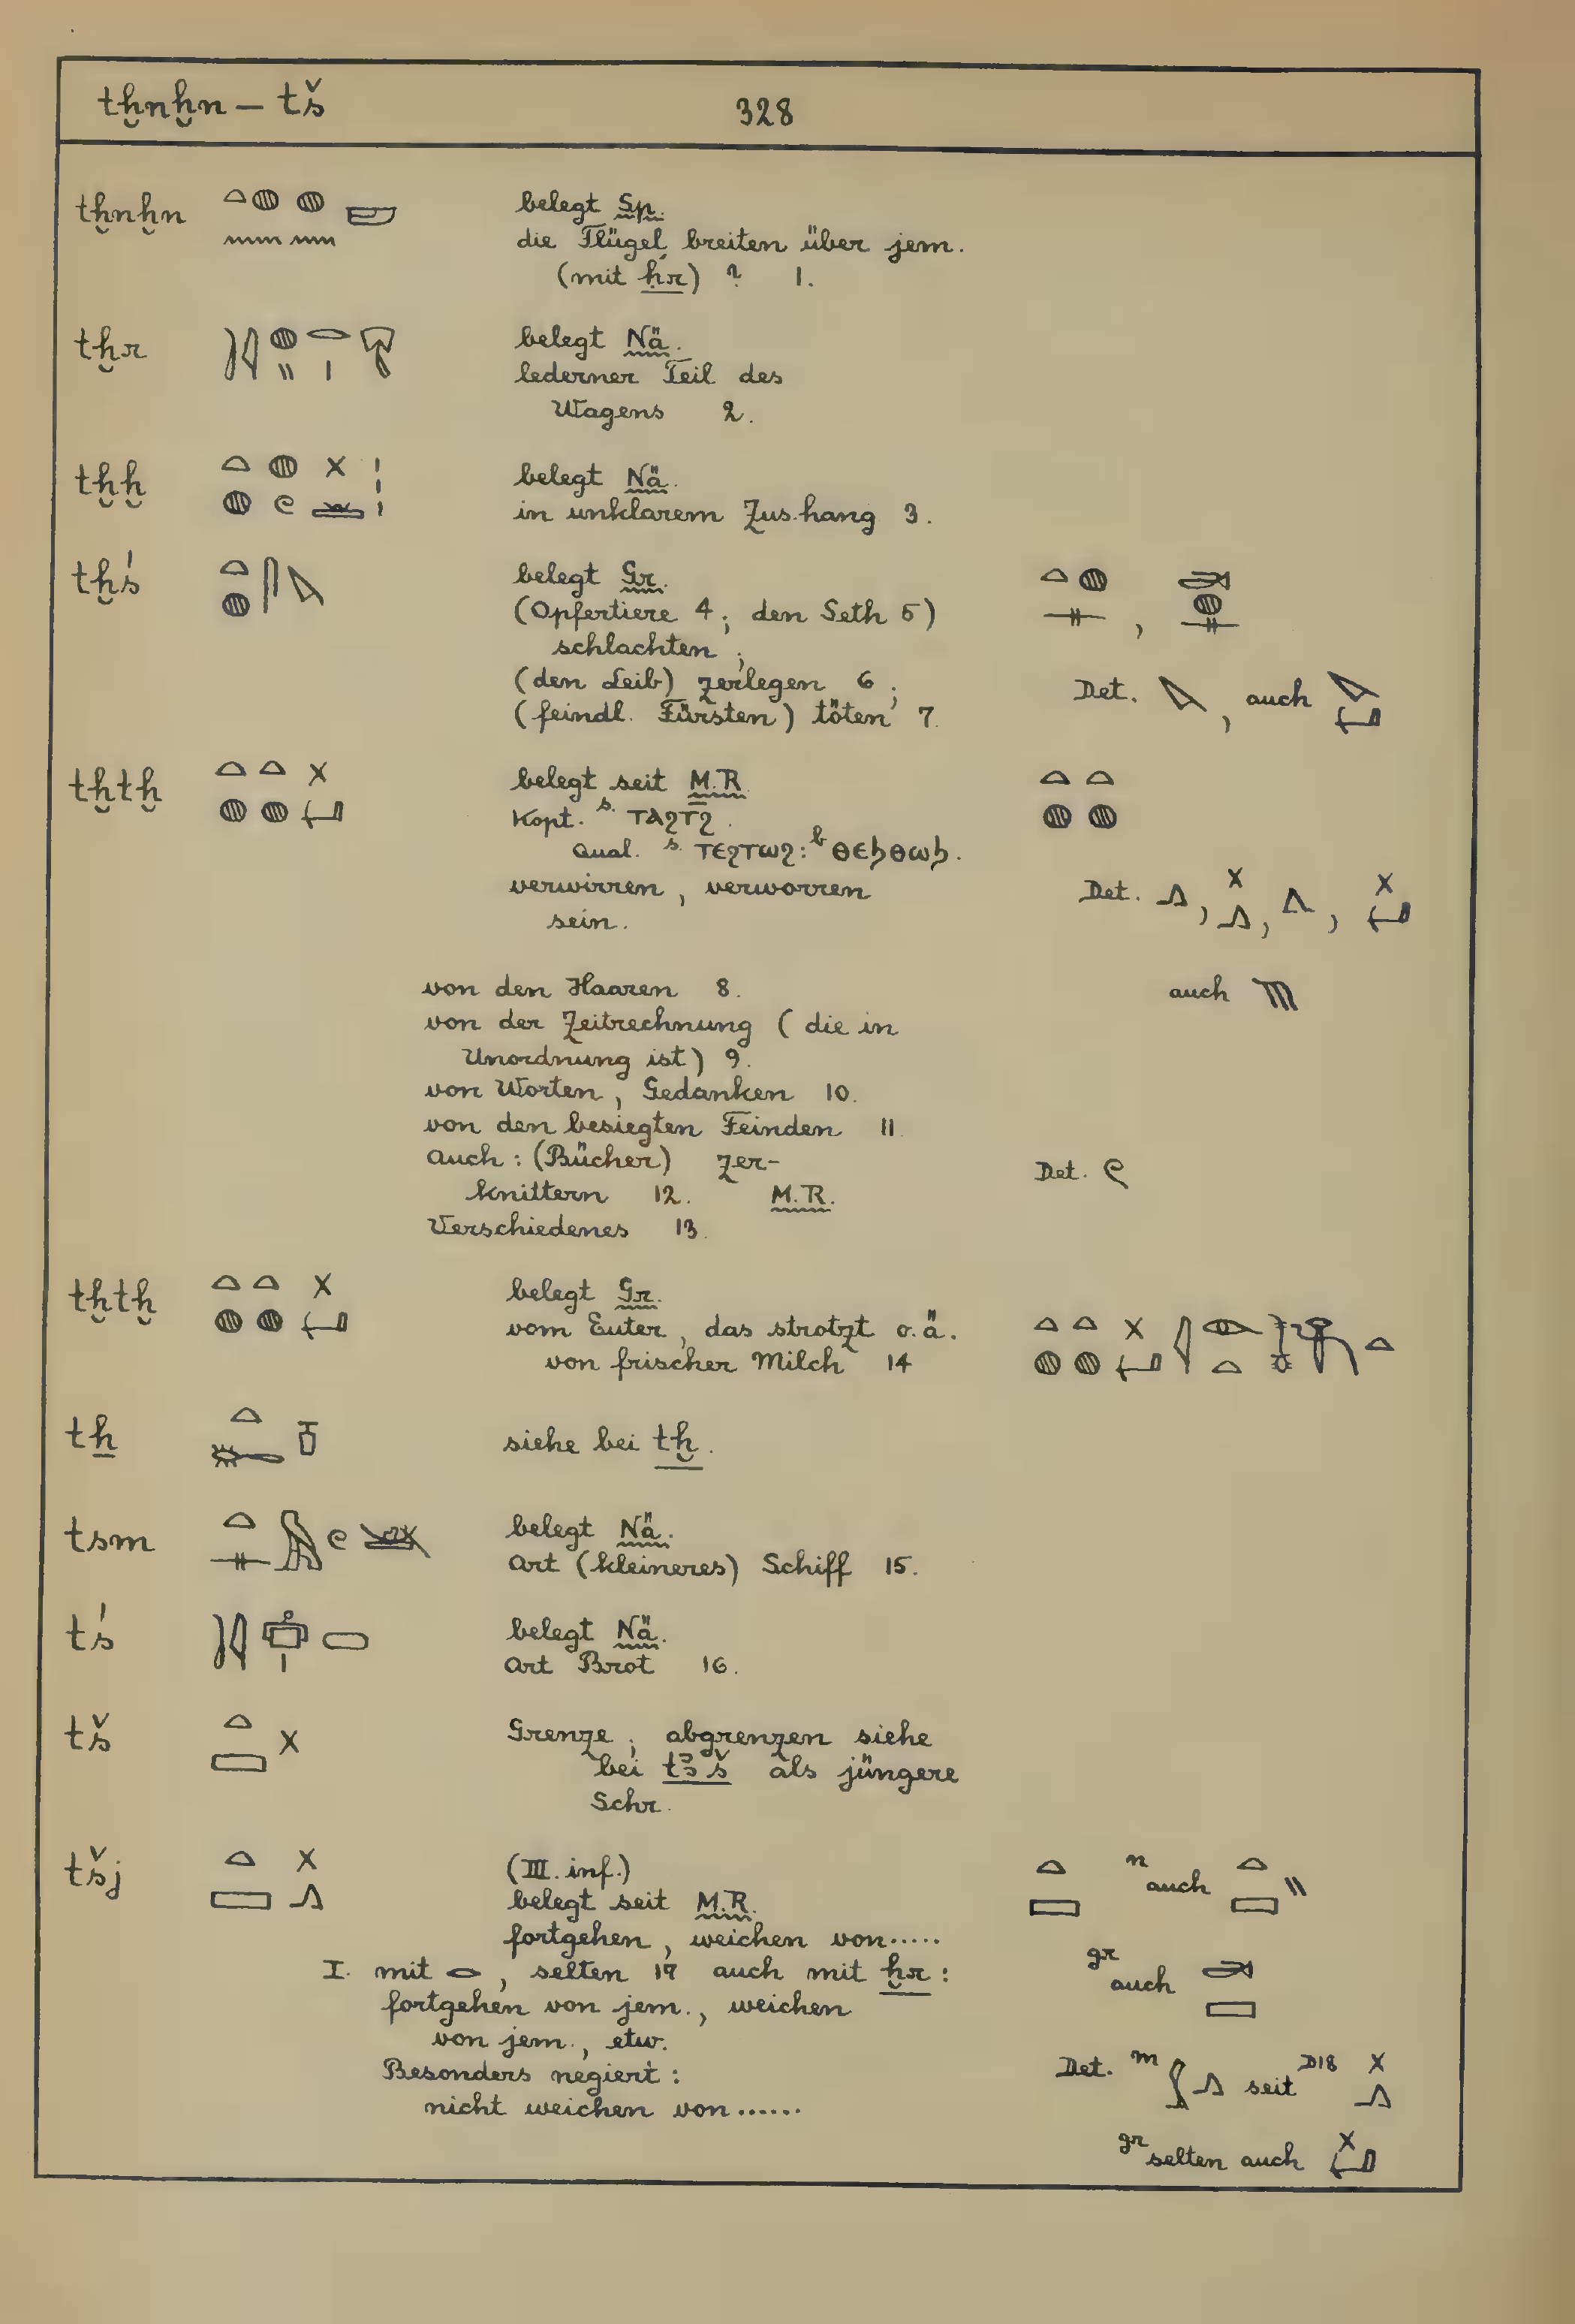 tḫnḫn – tš
328
tḫnḫn
belegt Sp.
die Flügel breiten über jem.
(mit ḥr) ? 1.
tḫr
belegt Nä.
lederner Teil des
Wagens 2.
tḫḫ
belegt Nä.
in unklarem Zus.hang 3.
tḫś
belegt Gr.
(Opfertiere 4; den Seth 5)
schlachten;
(den Leib) zerlegen 6;
(feindl. Fürsten) töten 7.
Det. , auch
tḫtḫ
belegt seit M.R.
Kopt. s. ⲧⲁϩⲧϩ̄.
Qual. s. ⲧⲉϩⲧⲱϩ: b ⲑⲉϧⲑⲱϧ.
verwirren, verworren
sein.
Det. , , ,
von den Haaren 8.
auch
von der Zeitrechnung (die in
Unordnung ist) 9.
von Worten, Gedanken 10.
von den besiegten Feinden 11.
auch: (Bücher) zer-
knittern 12. M.R.
Det.
Verschiedenes 13.
tḫtḫ
belegt Gr.
vom Euter, das strotzt o.ä.
von frischer Milch 14
tẖ
siehe bei tḫ.
tsm
belegt Nä.
Art (kleineres) Schiff 15.
tś
belegt Nä.
Art Brot 16.
tš
Grenze; abgrenzen siehe
bei tꜣš als jüngere
Schr.
tšj
(III. inf.)
belegt seit M.R.
fortgehen, weichen von.....
n auch
I. mit , selten 17 auch mit ḫr:
fortgehen von jem., weichen
von jem., etw.
gr auch
Besonders negiert:
nicht weichen von......
Det. m seit D18
gr selten auch